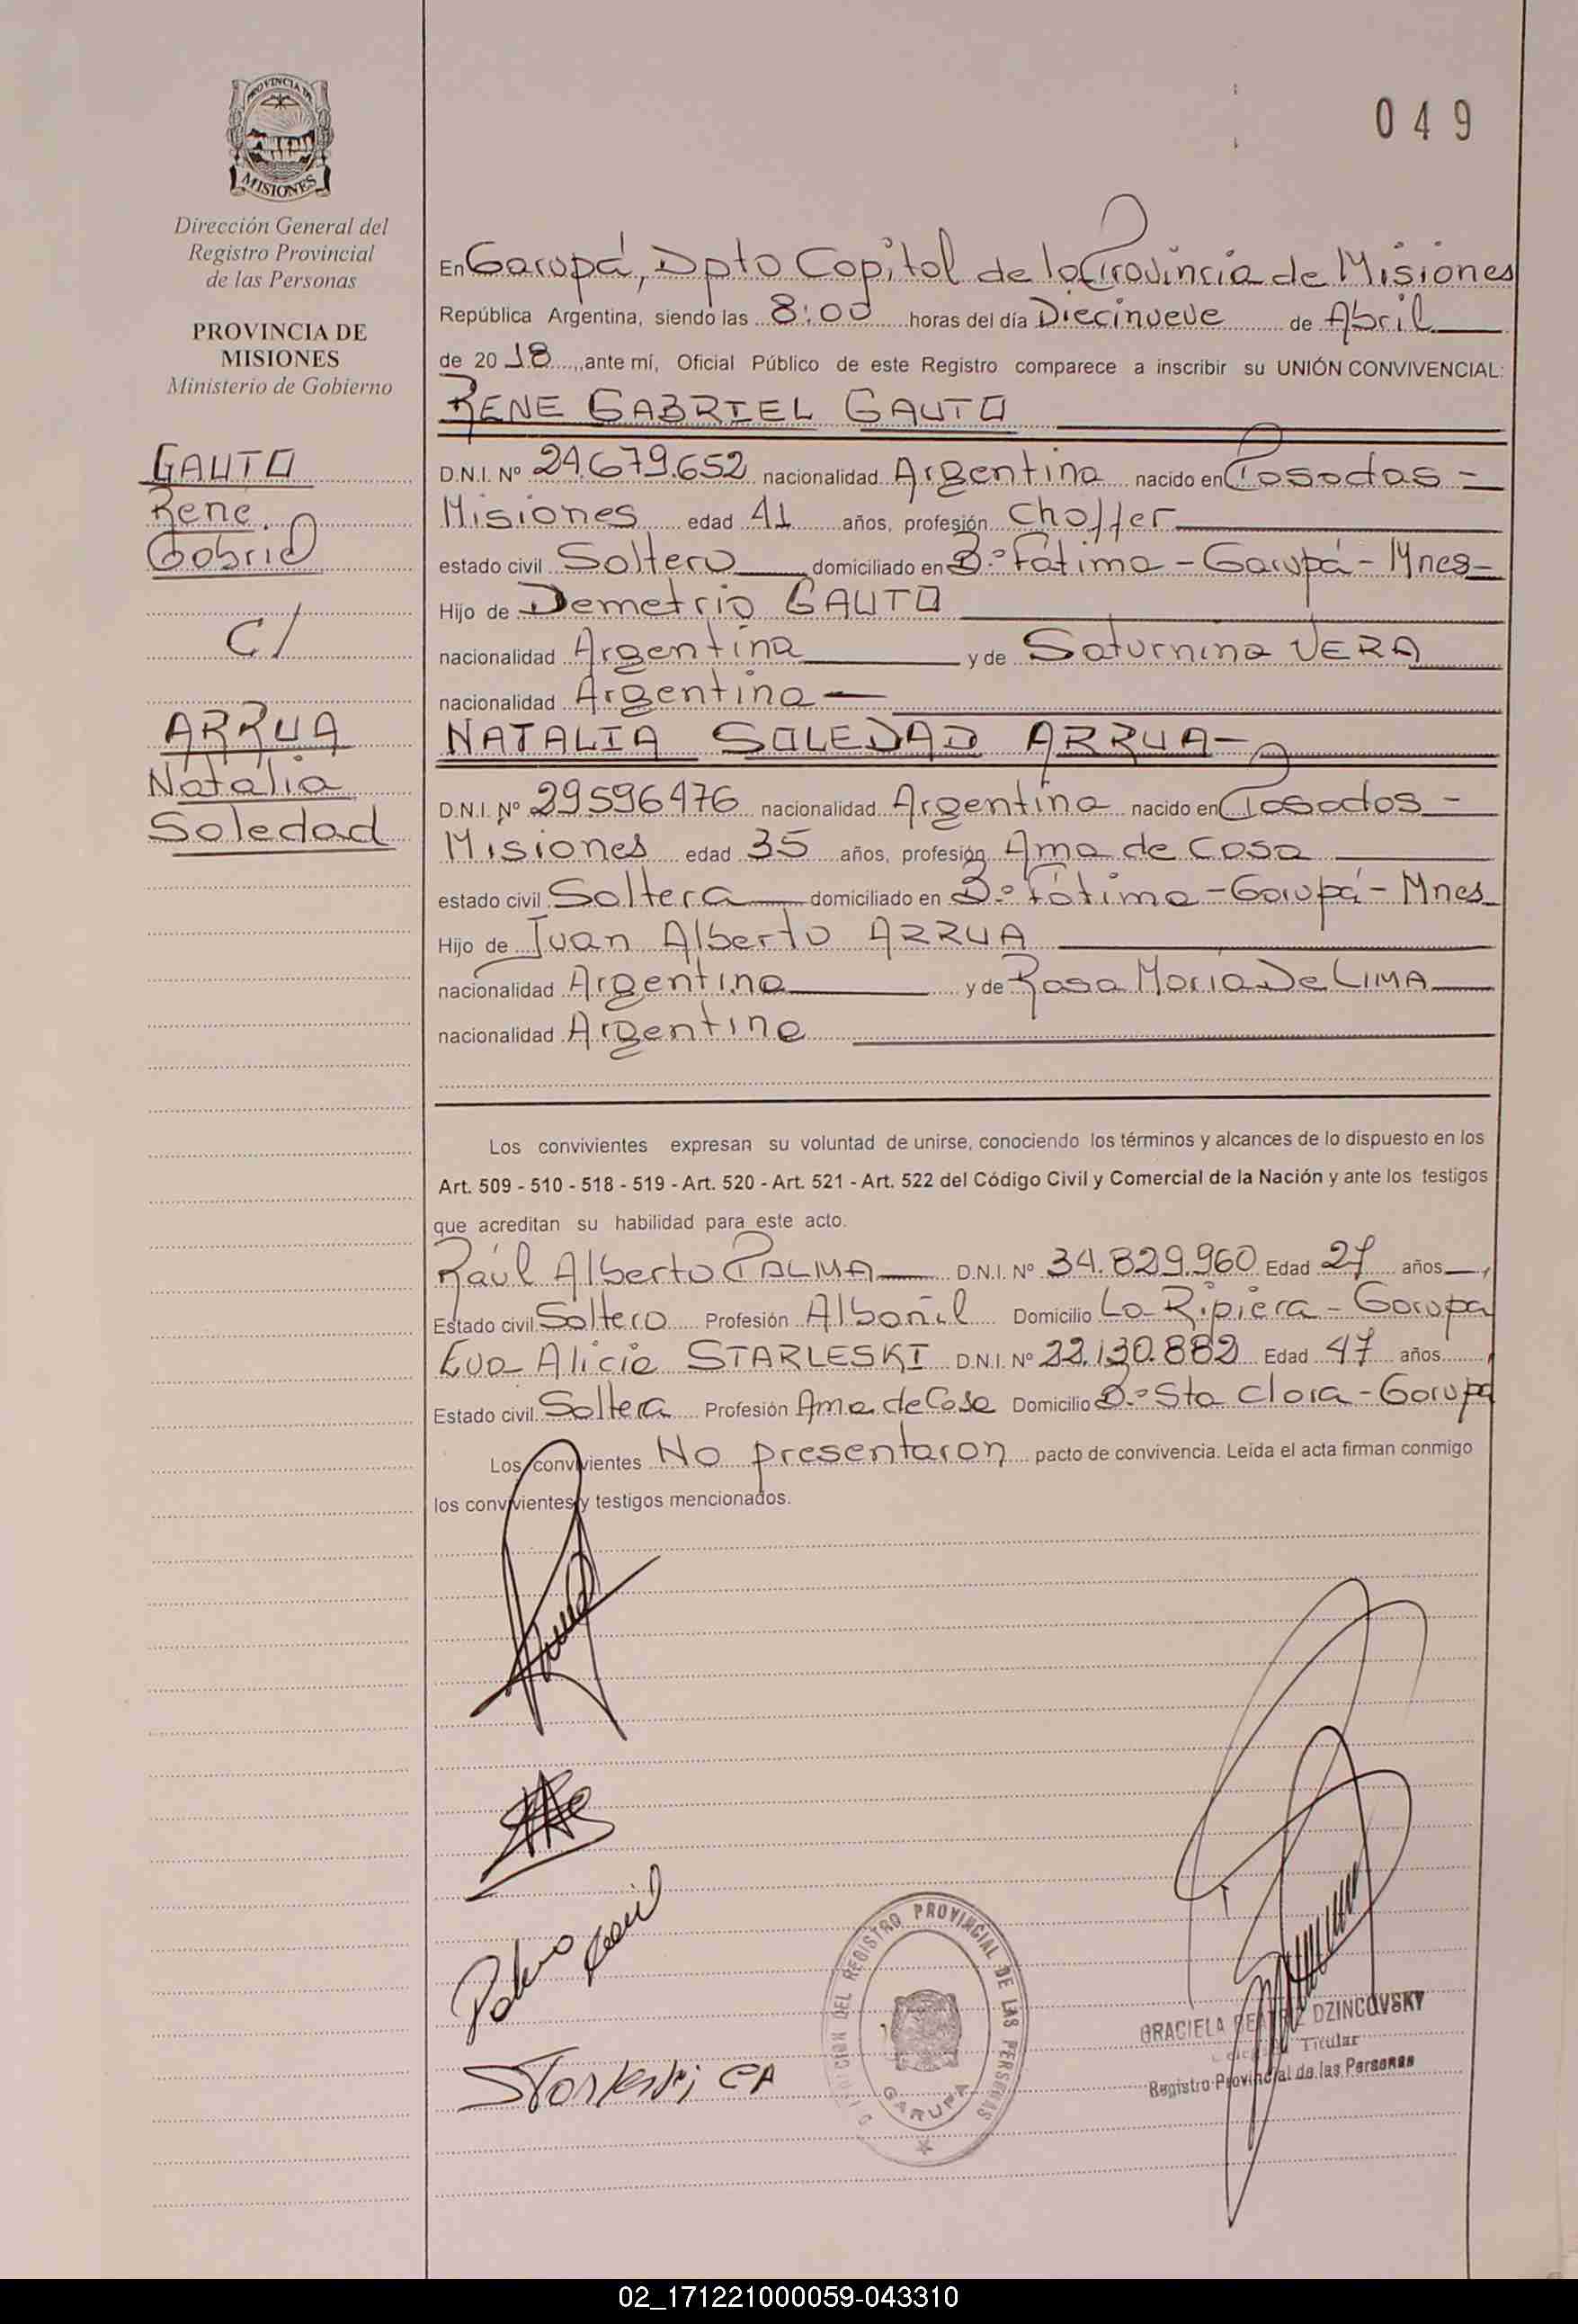 PROVINCIA DE
MISIONES
Dirección General del
Registro Provincial
de las Personas
PROVINCIA DE
MISIONES
Ministerio de Gobierno
GAUTO
Rene
Gabriel
C/
ARRUA
Natalia
Soledad
049
En Garupá, Dpto Capital de la Provincia de Misiones
República Argentina, siendo las 8:00 horas del día Diecinueve de Abril
de 2018, ante mí, Oficial Público de este Registro comparece a inscribir su UNIÓN CONVIVENCIAL:
RENE GABRIEL GAUTO
D.N.I. Nº 24.679.652 nacionalidad Argentina nacido en Posadas -
Misiones edad 41 años, profesión Choffer
estado civil Soltero domiciliado en B.º Fátima - Garupá - Mnes -
Hijo de Demetrio GAUTO
nacionalidad Argentina y de Saturnina VERA
nacionalidad Argentina -
NATALIA SOLEDAD ARRUA -
D.N.I. Nº 29596476 nacionalidad Argentina nacido en Posadas -
Misiones edad 35 años, profesión Ama de Casa
estado civil Soltera domiciliado en B.º Fátima - Garupá - Mnes
Hijo de Juan Alberto ARRUA
nacionalidad Argentina y de Rosa Maria De LIMA
nacionalidad Argentina
Los convivientes expresan su voluntad de unirse, conociendo los términos y alcances de lo dispuesto en los
Art. 509 - 510 - 518 - 519 - Art. 520 - Art. 521 - Art. 522 del Código Civil y Comercial de la Nación y ante los testigos
que acreditan su habilidad para este acto.
Raúl Alberto PALMA D.N.I. Nº 34.829.960 Edad 27 años,
Estado civil Soltero Profesión Albañil Domicilio La Ripiera - Garupa
Eva Alicia STARLESKI D.N.I. Nº 22.130.882 Edad 47 años,
Estado civil Soltera Profesión Ama de Casa Domicilio B.º Sta Clara - Garupá
Los convivientes No presentaron pacto de convivencia. Leída el acta firman conmigo
los convivientes y testigos mencionados.
DEL REGISTRO PROVINCIAL DE LAS PERSONAS
GARUPA
GRACIELA DZINCOVSKY
Titular
Registro Provincial de las Personas
02_171221000059-043310